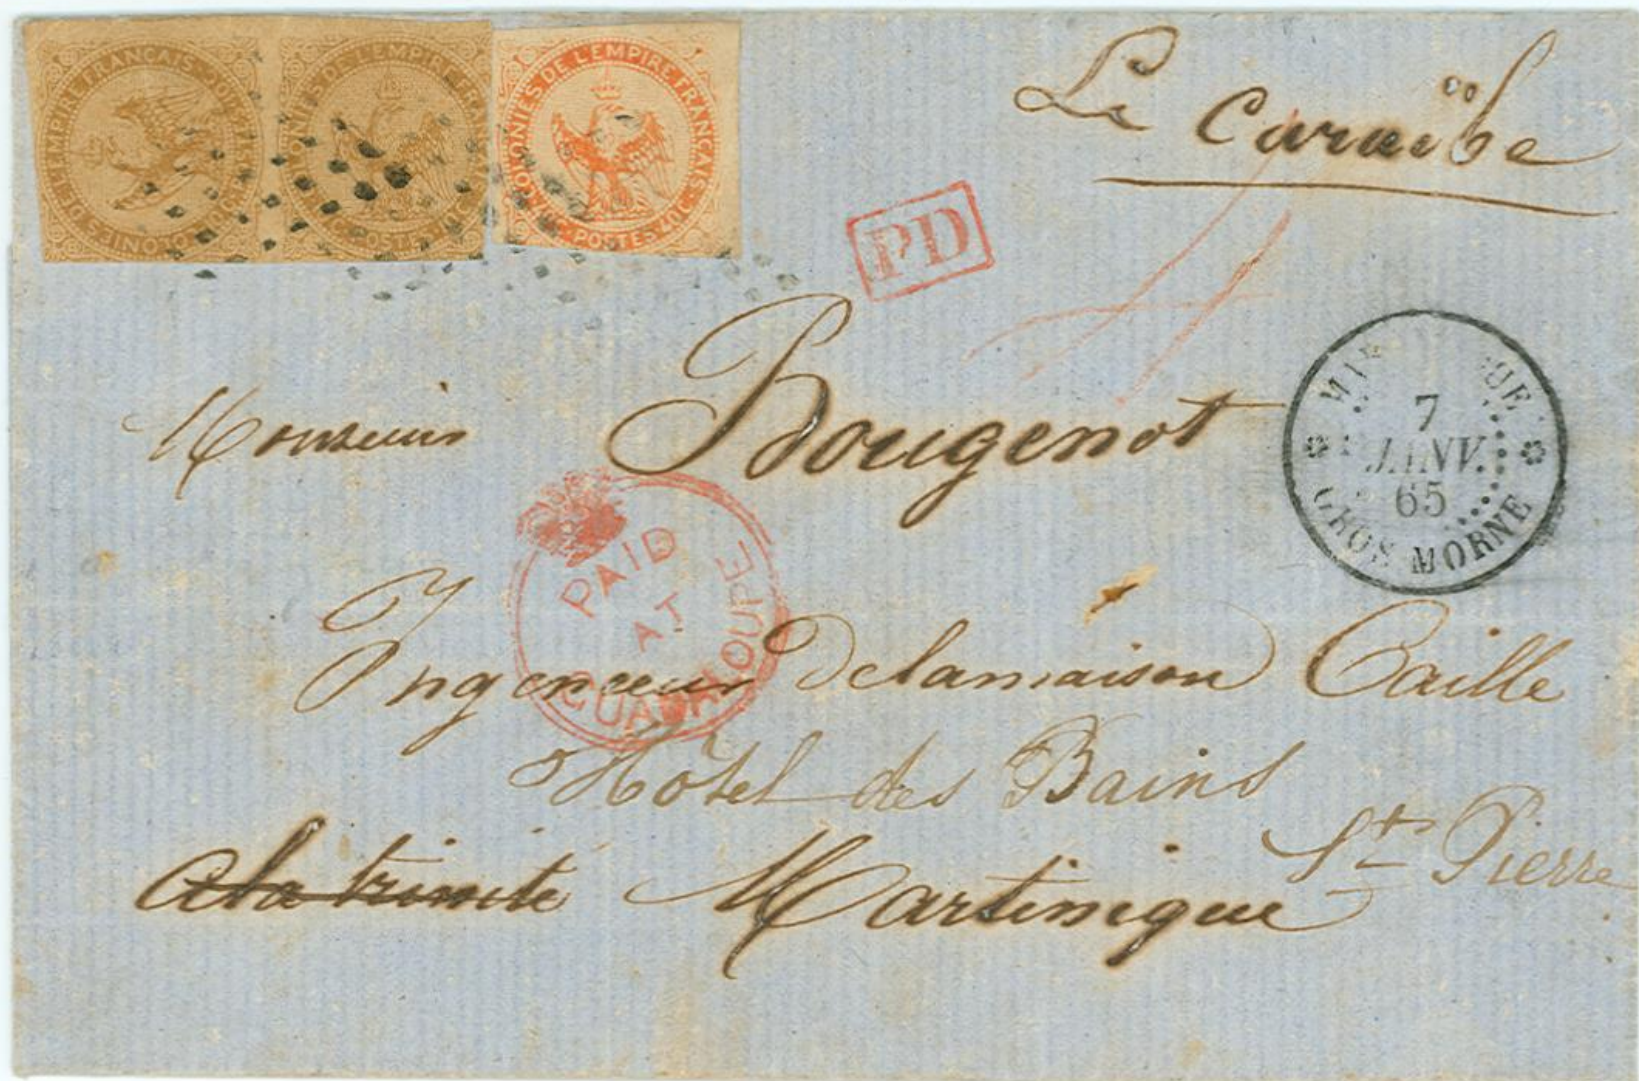 COLONIES DE L'EMPIRE FRANÇAIS · POSTES
COLONIES DE L'EMPIRE FRANÇAIS · POSTES
COLONIES DE L'EMPIRE FRANÇAIS · 40C. POSTES 40C.
Le Caraïbe
PD
Monsieur Bougenot
7
JANV.
65
GROS MORNE
PAID
AT
GUADALOUPE
Ingenieur De la maison Caille
Hôtel des Bains
a la trinité Martinique St Pierre